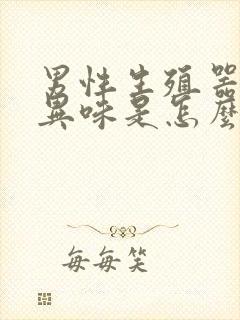 男性生殖器
異味是怎麼
每每笑